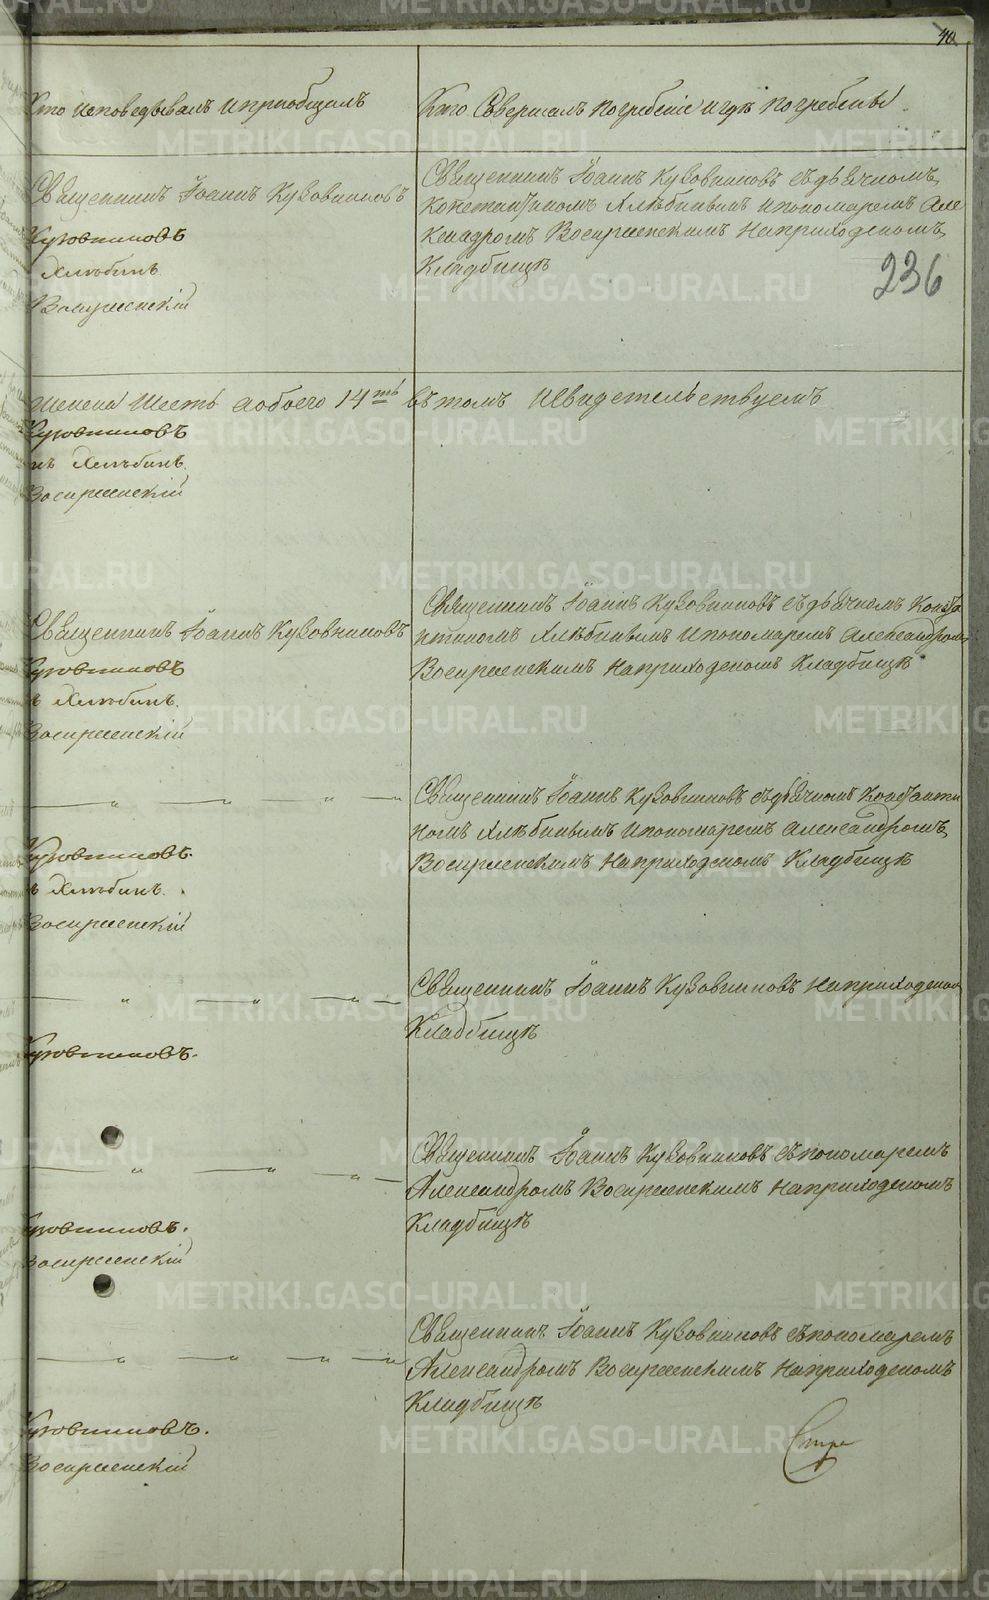 40
Кто исповедывалъ и пріобщалъ
Кто Совершалъ погребеніе и гдѣ погребены.
Священникъ Іоаннъ Кузовниковъ
Кузовниковъ
Хлѣбинъ
Воскресенскій
Священникъ Іоаннъ Кузовниковъ съ дьячкомъ
Константиномъ Хлѣбинымъ и пономаремъ Але
ксандромъ Воскресенскимъ на приходскомъ
Кладбищѣ
236
женска шесть а обоего 14ть въ томъ и свидетельствуемъ
Кузовниковъ
Хлѣбинъ
Воскресенскій
Священникъ Іоаннъ Кузовниковъ
Кузовниковъ
Хлѣбинъ.
Воскресенскій
Священникъ Іоаннъ Кузовниковъ съ дьячкомъ Конста
нтиномъ Хлѣбинымъ и пономаремъ Александромъ
Воскресенскимъ на приходскомъ Кладбищѣ.
— „ — „ — „ —
Кузовниковъ.
Хлѣбинъ.
Воскресенскій
Священникъ Іоаннъ Кузовниковъ съ дьячкомъ Константи
номъ Хлѣбинымъ и пономаремъ Александромъ
Воскресенскимъ на приходскомъ Кладбищѣ
— „ — „ — „ —
Кузовниковъ.
Священникъ Іоаннъ Кузовниковъ на приходском
Кладбищѣ
— „ — „ — „ —
Кузовниковъ.
Воскресенскій
Священникъ Іоаннъ Кузовниковъ съ пономаремъ
Александромъ Воскресенскимъ на приходскомъ
Кладбищѣ
— „ — „ — „ — „
Кузовниковъ.
Воскресенскій
Священникъ Іоаннъ Кузовниковъ съ пономаремъ
Александромъ Воскресенскимъ на приходскомъ
Кладбищѣ
METRIKI.GASO-URAL.RU